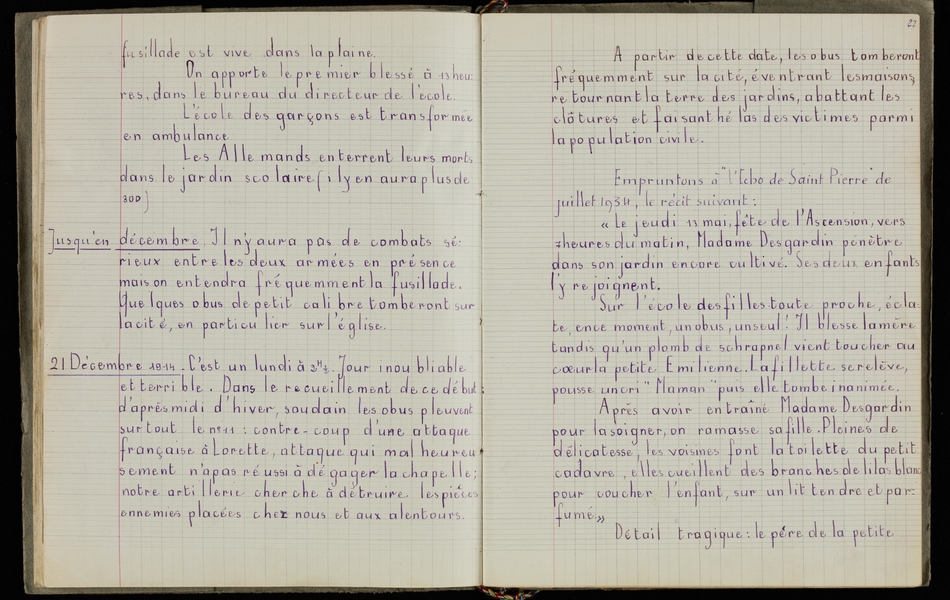 fusillade est vive dans la plaine.
On apporte le premier blessé à 13 heu:
res, dans le bureau du directeur de l'école.
L'école des garçons est transformée
en ambulance
Les Allemands enterrent leurs morts
dans le jardin scolaire (il y en aura plus de
300)
Jusqu'en décembre, Il n'y aura pas de combats sé:
rieux entre les deux armées en présence
mais on entendra fréquemment la fusillade.
Quelques obus de petit calibre tomberont sur
la cité, en particulier sur l'église.
21 Décembre 1914. C'est un lundi à 2H½. Jour inoubliable
et terrible. Dans le recueillement de ce début
d'après midi d'hiver, soudain les obus pleuvent
surtout le n° 11 : contre-coup d'une attaque
française à Lorette, attaque qui malheureu
sement n'a pas réussi à dégager la chapelle;
notre artillerie cherche à détruire les pièces
ennemies placées chez nous et aux alentours.
22
A partir de cette date, les obus tomberont
fréquemment sur la cité, éventrant les maisons,
retournant la terre des jardins, abattant les
clôtures et faisant hélas des victimes parmi
la population civile.
Empruntons à "l'Echo de Saint Pierre" de
juillet 1934, le récit suivant :
« Le jeudi 13 mai, fête de l'Ascension, vers
7 heures du matin, Madame Desgardin pénètre
dans son jardin encore cultivé. Ses deux enfants
l'y rejoignent.
Sur l'école des filles toute proche, écla-
te, en ce moment, un obus, un seul ! Il blesse la mère
tandis qu'un plomb de schrapnel vient toucher au
cœur la petite Emilienne. La fillette se relève,
pousse un cri "Maman" puis elle tombe inanimée.
Après avoir entraîné Madame Desgardin
pour la soigner, on ramasse sa fille. Pleines de
délicatesse, les voisines font la toilette du petit
cadavre, elles cueillent des branches de lilas blanc
pour coucher l'enfant, sur un lit tendre et par:
fumé »
Détail tragique : le père de la petite